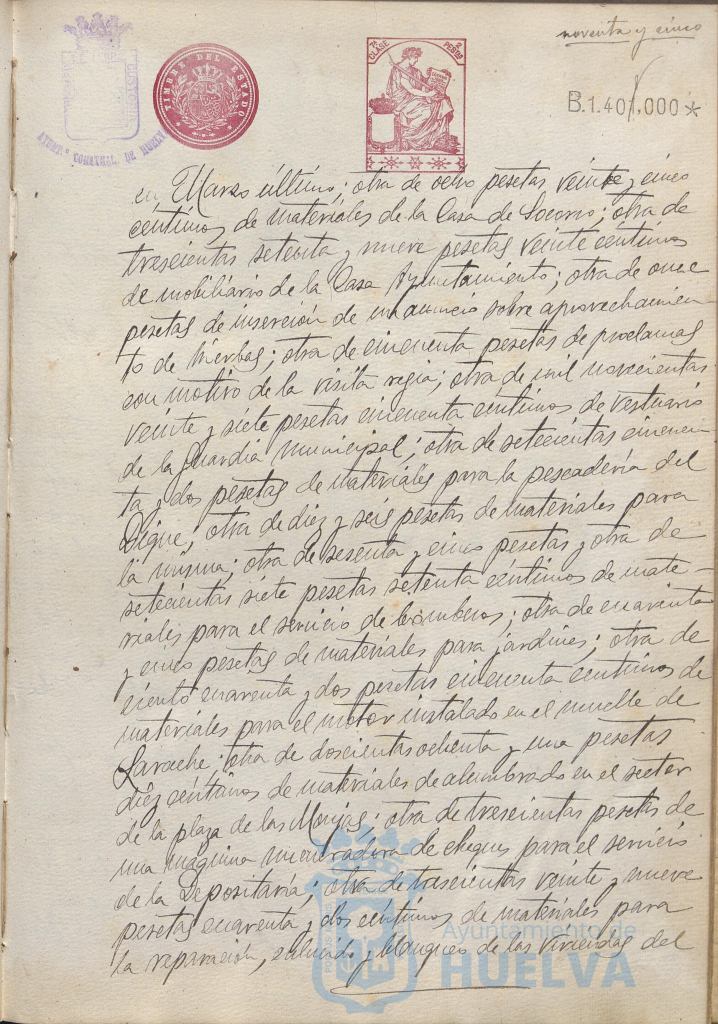 noventa y cinco
AYUNTº CONSTNAL. DE HUELVA
TIMBRE DEL ESTADO
7ª CLASE
2 PESETAS
B.1.401.000 *
en Marzo último; otra de ocho pesetas veinte y cinco
céntimos de materiales de la Casa de Socorro; otra de
trescientas setenta y nueve pesetas veinte céntimos
de mobiliario de la Casa Ayuntamiento; otra de once
pesetas de inserción de un anuncio sobre aprovechamien-
to de hierbas; otra de cincuenta pesetas de proclamas
con motivo de la visita regia; otra de mil novecientas
veinte y siete pesetas cincuenta céntimos de vestuario
de la Guardia Municipal; otra de setecientas cincuen-
ta y dos pesetas de materiales para la pescadería del
Dique; otra de diez y seis pesetas de materiales para
la misma; otra de sesenta y cinco pesetas y otra de
setecientas siete pesetas setenta céntimos de mate-
riales para el servicio de bomberos; otra de cuarenta
y cinco pesetas de materiales para jardines; otra de
ciento cuarenta y dos pesetas cincuenta céntimos de
materiales para el motor instalado en el muelle de
Larache; otra de doscientas ochenta y una pesetas
diez céntimos de materiales de alumbrado en el sector
de la plaza de las Monjas; otra de trescientas pesetas de
una máquina numeradora de cheques para el servicio
de la Depositaría; otra de trescientas veinte y nueve
pesetas cuarenta y dos céntimos de materiales para
la reparación, enlucido y blanqueo de las viviendas del
Ayuntamiento de
HUELVA